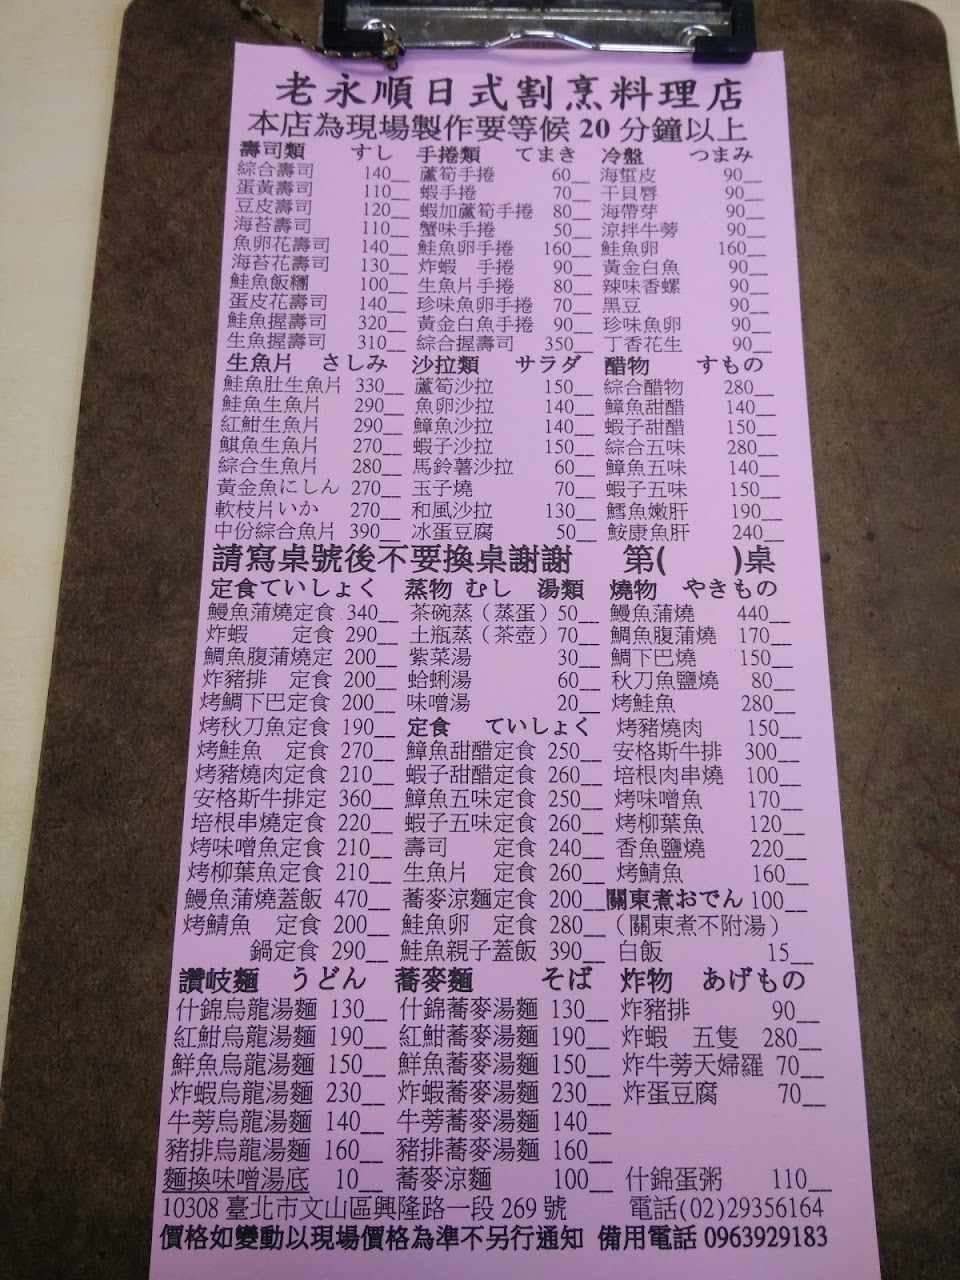 老永順日式割烹料理店
本店為現場製作要等候 20 分鐘以上
壽司類 すし 手捲類 てまき 冷盤 つまみ
綜合壽司 140__ 蘆筍手捲 60__ 海蜇皮 90__
蛋黃壽司 110__ 蝦手捲 70__ 干貝唇 90__
豆皮壽司 120__ 蝦加蘆筍手捲 80__ 海帶芽 90__
海苔壽司 110__ 蟹味手捲 50__ 涼拌牛蒡 90__
魚卵花壽司 140__ 鮭魚卵手捲 160__ 鮭魚卵 160__
海苔花壽司 130__ 炸蝦 手捲 90__ 黃金白魚 90__
鮭魚飯糰 100__ 生魚片手捲 80__ 辣味香螺 90__
蛋皮花壽司 140__ 珍味魚卵手捲 70__ 黑豆 90__
鮭魚握壽司 320__ 黃金白魚手捲 90__ 珍味魚卵 90__
生魚握壽司 310__ 綜合握壽司 350__ 丁香花生 90__
生魚片 さしみ 沙拉類 サラダ 醋物 すもの
鮭魚肚生魚片 330__ 蘆筍沙拉 150__ 綜合醋物 280__
鮭魚生魚片 290__ 魚卵沙拉 140__ 鱆魚甜醋 140__
紅魽生魚片 290__ 鱆魚沙拉 140__ 蝦子甜醋 150__
鯕魚生魚片 270__ 蝦子沙拉 150__ 綜合五味 280__
綜合生魚片 280__ 馬鈴薯沙拉 60__ 鱆魚五味 140__
黃金魚にしん 270__ 玉子燒 70__ 蝦子五味 150__
軟枝片いか 270__ 和風沙拉 130__ 鱈魚嫩肝 190__
中份綜合魚片 390__ 冰蛋豆腐 50__ 鮟康魚肝 240__
請寫桌號後不要換桌謝謝 第( )桌
定食ていしょく 蒸物 むし 湯類 燒物 やきもの
鰻魚蒲燒定食 340__ 茶碗蒸（蒸蛋）50__ 鰻魚蒲燒 440__
炸蝦 定食 290__ 土瓶蒸（茶壺）70__ 鯛魚腹蒲燒 170__
鯛魚腹蒲燒定 200__ 紫菜湯 30__ 鯛下巴燒 150__
炸豬排 定食 200__ 蛤蜊湯 60__ 秋刀魚鹽燒 80__
烤鯛下巴定食 200__ 味噌湯 20__ 烤鮭魚 280__
烤秋刀魚定食 190__ 定食 ていしょく 烤豬燒肉 150__
烤鮭魚 定食 270__ 鱆魚甜醋定食 250__ 安格斯牛排 300__
烤豬燒肉定食 210__ 蝦子甜醋定食 260__ 培根肉串燒 100__
安格斯牛排定 360__ 鱆魚五味定食 250__ 烤味噌魚 170__
培根串燒定食 220__ 蝦子五味定食 260__ 烤柳葉魚 120__
烤味噌魚定食 210__ 壽司 定食 240__ 香魚鹽燒 220__
烤柳葉魚定食 210__ 生魚片 定食 260__ 烤鯖魚 160__
鰻魚蒲燒蓋飯 470__ 蕎麥涼麵定食 200__ 關東煮おでん 100__
烤鯖魚 定食 200__ 鮭魚卵 定食 280__ （關東煮不附湯）
鍋定食 290__ 鮭魚親子蓋飯 390__ 白飯 15__
讚岐麵 うどん 蕎麥麵 そば 炸物 あげもの
什錦烏龍湯麵 130__ 什錦蕎麥湯麵 130__ 炸豬排 90__
紅魽烏龍湯麵 190__ 紅魽蕎麥湯麵 190__ 炸蝦 五隻 280__
鮮魚烏龍湯麵 150__ 鮮魚蕎麥湯麵 150__ 炸牛蒡天婦羅 70__
炸蝦烏龍湯麵 230__ 炸蝦蕎麥湯麵 230__ 炸蛋豆腐 70__
牛蒡烏龍湯麵 140__ 牛蒡蕎麥湯麵 140__
豬排烏龍湯麵 160__ 豬排蕎麥湯麵 160__
麵換味噌湯底 10__ 蕎麥涼麵 100__ 什錦蛋粥 110__
10308 臺北市文山區興隆路一段 269 號 電話(02)29356164
價格如變動以現場價格為準不另行通知 備用電話 0963929183